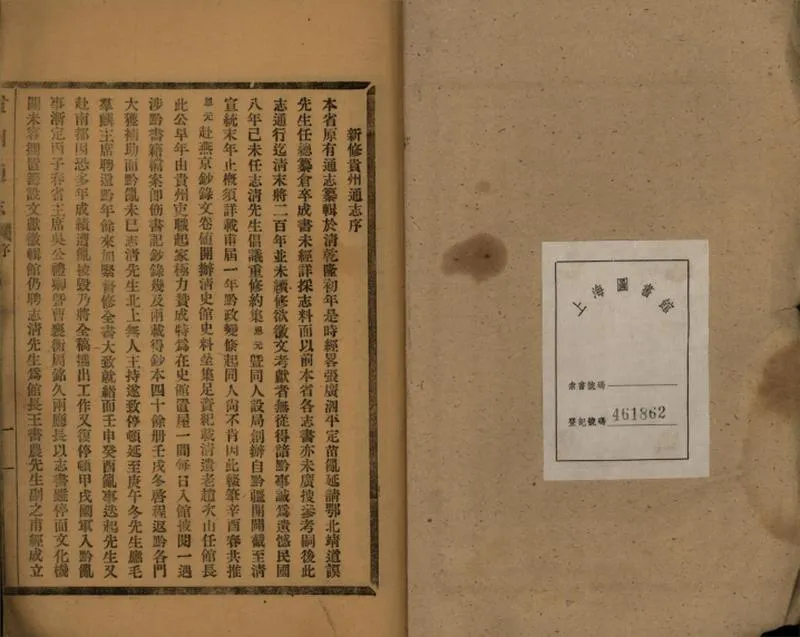 新修貴州通志序
本省原有通志纂輯於清乾隆初年是時經畧張廣泗平定苗亂延請鄂北靖道謨
先生任總纂倉卒成書未經詳採志料而以前本省各志書亦未廣搜參考嗣後此
志通行迄清末將二百年並未續修欲徵文考獻者無從得諳黔事誠為遺憾民國
八年己未任志清先生倡議重修約集恩元暨同人設局創辦自黔疆開闢截至清
宣統末年止概須詳載甫屆一年黔政變作起同人尚不肯因此輟筆辛酉春共推
恩元赴燕京鈔錄文卷値開辦清史館史料坌集足資紀載清遺老趙次山任館長
此公早年由貴州吏職起家極力贊成特為在史館置屋一間每日入館披閱一遇
涉黔書籍檔案卽飭書記鈔錄幾及兩載得鈔本四十餘册壬戌冬啓程返黔各門
大獲補助而黔亂未已志清先生北上無人主持遂致停頓延至庚午冬先生應毛
羣麟主席聘還黔年餘來加緊督修全書大致就緒而壬申癸酉亂事迭起先生又
赴南都因恐多年成績遭亂被毀乃將全稿攜出工作又復停頓甲戌國軍入黔亂
事漸定丙子春省主席吳公禮卿曁曹襄衡周銘久兩廳長以志書雖停而文化機
關未容擱置籌設文獻徵輯館仍聘志清先生為館長王書農先生副之甫經成立
貴州通志 序
一
上海圖書館
索書號碼
登記號碼 461862